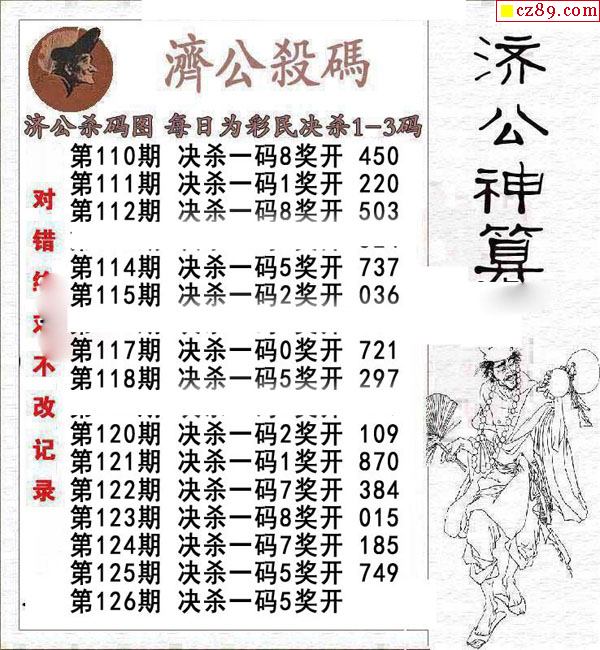 cz89.com
濟公殺碼
济公杀码图 每日为彩民决杀1-3码
第110期 决杀一码8奖开 450
第111期 决杀一码1奖开 220
第112期 决杀一码8奖开 503
第114期 决杀一码5奖开 737
第115期 决杀一码2奖开 036
第117期 决杀一码0奖开 721
第118期 决杀一码5奖开 297
第120期 决杀一码2奖开 109
第121期 决杀一码1奖开 870
第122期 决杀一码7奖开 384
第123期 决杀一码8奖开 015
第124期 决杀一码7奖开 185
第125期 决杀一码5奖开 749
第126期 决杀一码5奖开
对错不改记录
济公神算